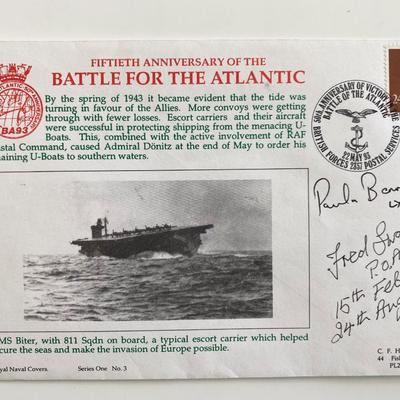 FIFTIETH ANNIVERSARY OF THE
BATTLE FOR THE ATLANTIC
By the spring of 1943 it became evident that the tide was
turning in favour of the Allies. More convoys were getting
through with fewer losses. Escort carriers and their aircraft
were successful in protecting shipping from the menacing U-
Boats. This, combined with the active involvement of RAF
stal Command, caused Admiral Dönitz at the end of May to order his
aining U-Boats to southern waters.
BA93
50th ANNIVERSARY OF VICTORY IN THE
BATTLE OF THE ATLANTIC
22 MAY 93
BRITISH FORCES 2357 POSTAL SERVICES
24
Paula
Fred
P.O.
15th Feb
24th Aug
MS Biter, with 811 Sqdn on board, a typical escort carrier which helped
cure the seas and make the invasion of Europe possible.
yal Naval Covers. Series One No. 3
C. F. H
44 Fis
PL2